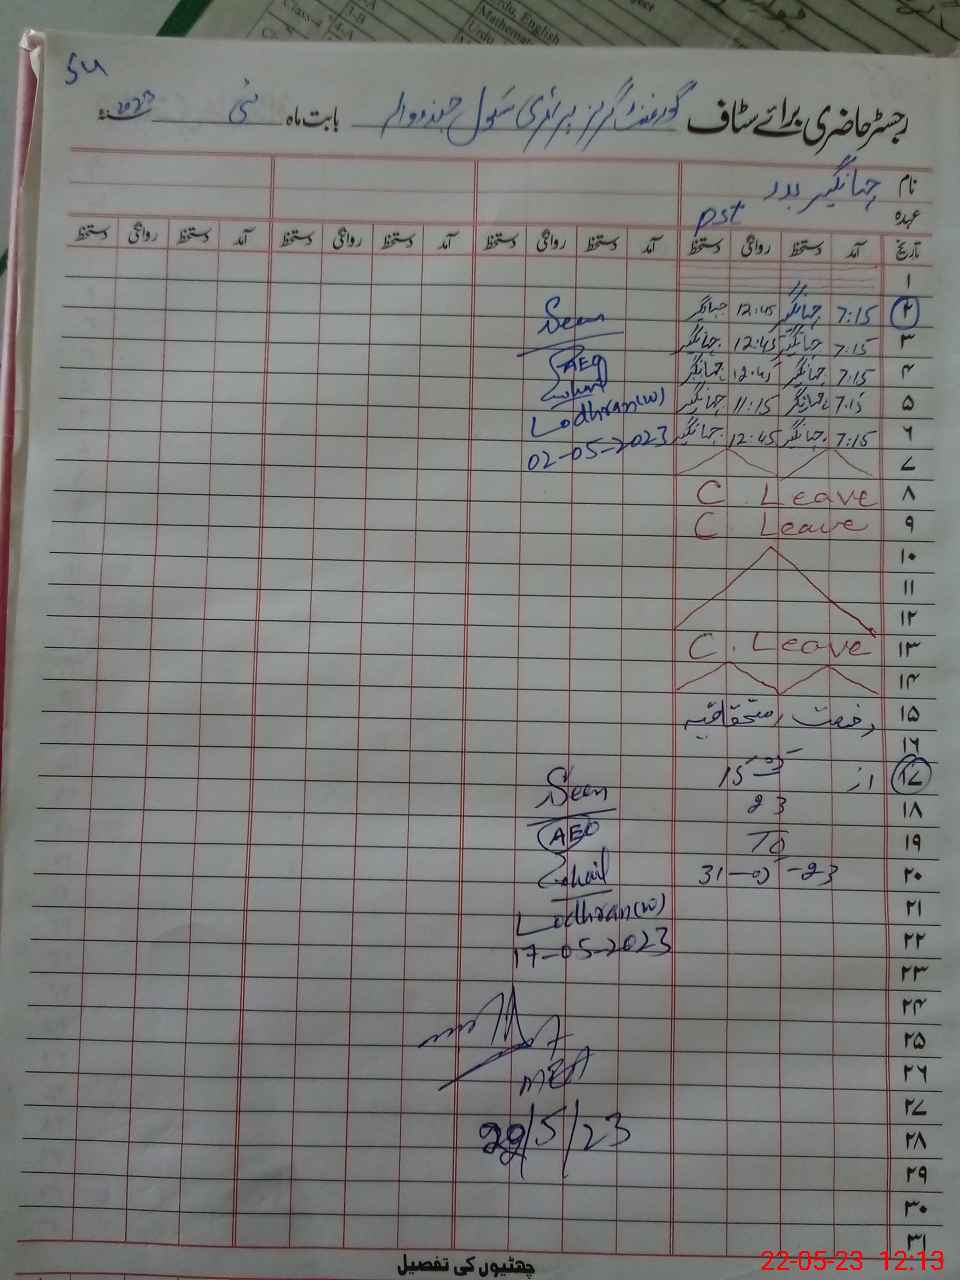 54
رجسٹر حاضری برائے سٹاف گورنمنٹ گرلز پرائمری سکول بابت ماہ مئی 2023
نام جہانگیر بدر
عہدہ pst
تاریخ آمد دستخط روانگی دستخط آمد دستخط روانگی دستخط آمد دستخط روانگی دستخط آمد دستخط روانگی دستخط
۱
۲ 7:15 جہانگیر 12:45 جہانگیر Seen
۳ 7:15 جہانگیر 12:45 جہانگیر
۴ 7:15 جہانگیر 12:45 جہانگیر AEO
۵ 7:15 جہانگیر 11:15 جہانگیر Lodhran(W)
۶ 7:15 جہانگیر 12:45 جہانگیر 02-05-2023
۷
۸ C. Leave
۹ C Leave
۱۰
۱۱
۱۲
۱۳ C. Leave
۱۴
۱۵ رخصت استحقاقیہ
۱۶
۱۷ از 15-05- Seen
۱۸ 23
۱۹ To AEO
۲۰ 31-05-23
۲۱ Lodhran(W)
۲۲ 17-05-2023
۲۳
۲۴
۲۵
۲۶ MEA
۲۷
۲۸ /5/23
۲۹
۳۰
۳۱
چھٹیوں کی تفصیل
22-05-23 12:13